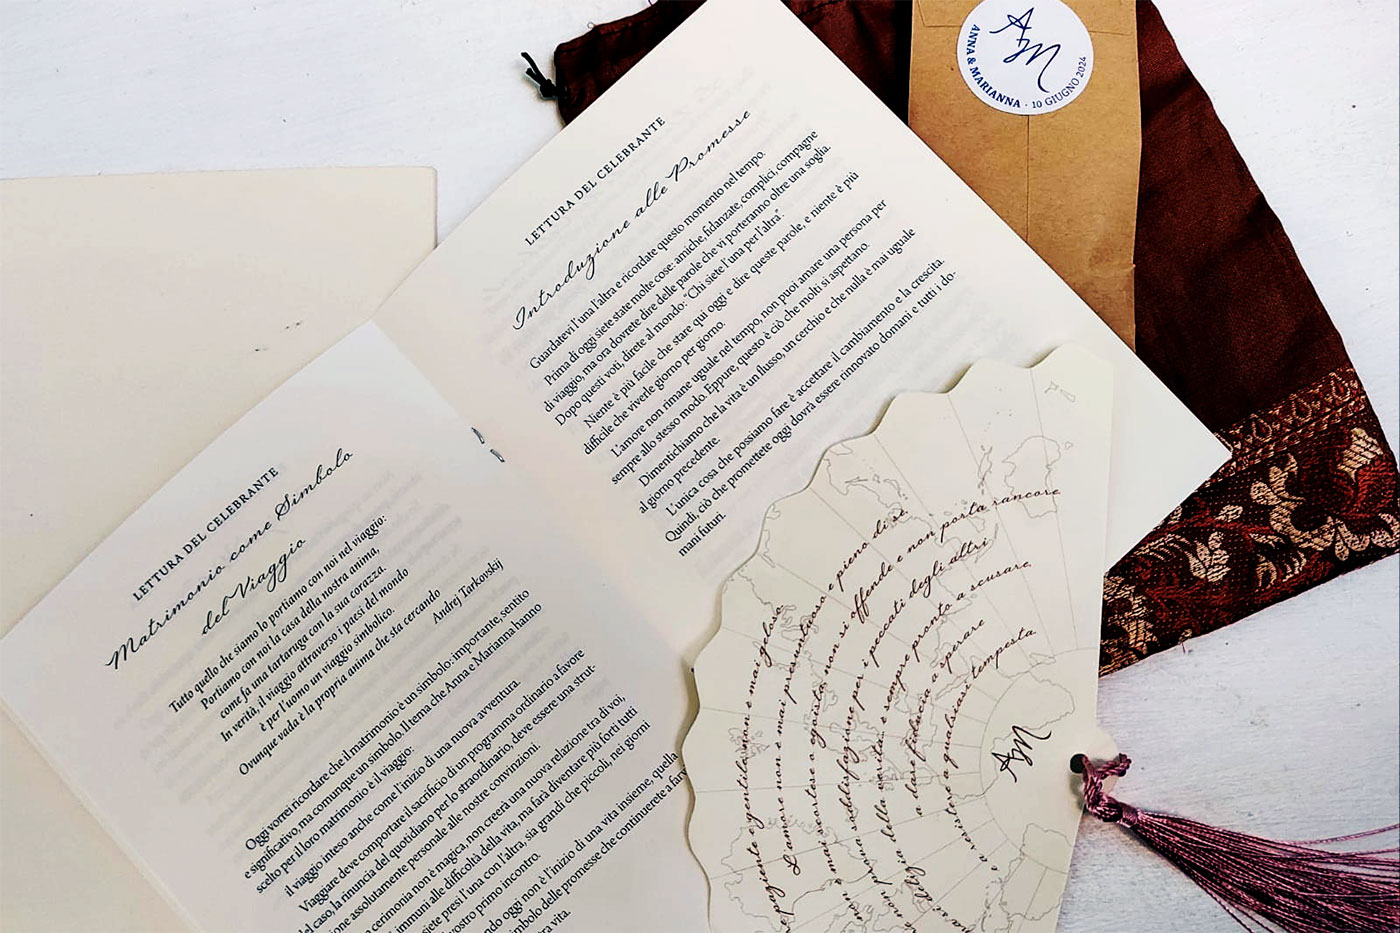 LETTURA DEL CELEBRANTE
Matrimonio come Simbolo
del Viaggio
Tutto quello che siamo lo portiamo con noi nel viaggio:
Portiamo con noi la casa della nostra anima,
come fa una tartaruga con la sua corazza.
In verità, il viaggio attraverso i paesi del mondo
è per l'uomo un viaggio simbolico.
Ovunque vada è la propria anima che sta cercando
Andrej Tarkovskij
Oggi vorrei ricordare che il matrimonio è un simbolo: importante, sentito
e significativo, ma comunque un simbolo. Il tema che Anna e Marianna hanno
scelto per il loro matrimonio è il viaggio:
il viaggio inteso anche come l'inizio di una nuova avventura.
Viaggiare deve comportare il sacrificio di un programma ordinario a favore
del caso, la rinuncia del quotidiano per lo straordinario, deve essere una strut-
assolutamente personale alle nostre convinzioni.
cerimonia non è magica, non creerà una nuova relazione tra di voi,
immuni alle difficoltà della vita, ma farà diventare più forti tutti
siete presi l'una con l'altra, sia grandi che piccoli, nei giorni
vostro primo incontro.
oggi non è l'inizio di una vita insieme, quella
simbolo delle promesse che continuerete a
vita.
LETTURA DEL CELEBRANTE
Introduzione alle Promesse
Guardatevi l'una l'altra e ricordate questo momento nel tempo.
Prima di oggi siete state molte cose: amiche, fidanzate, complici, compagne
di viaggio, ma ora dovrete dire delle parole che vi porteranno oltre una soglia.
Dopo questi voti, direte al mondo: "Chi siete l'una per l'altra".
Niente è più facile che stare qui oggi e dire queste parole, e niente è più
difficile che viverle giorno per giorno.
L'amore non rimane uguale nel tempo, non puoi amare una persona per
sempre allo stesso modo. Eppure, questo è ciò che molti si aspettano.
Dimentichiamo che la vita è un flusso, un cerchio e che nulla è mai uguale
al giorno precedente.
L'unica cosa che possiamo fare è accettare il cambiamento e la crescita.
Quindi, ciò che promettete oggi dovrà essere rinnovato domani e tutti i do-
mani futuri.
AM
ANNA & MARIANNA · 10 GIUGNO 2024
paziente e gentile, non è mai geloso
L'amore non è mai presuntuoso o pieno di sé
non è mai scortese o egoista, non si offende e non porta rancore
non prova soddisfazione per i peccati degli altri
ma si delizia della verità. È sempre pronto a scusare,
a dare fiducia a sperare
e a resistere a qualsiasi tempesta
AM